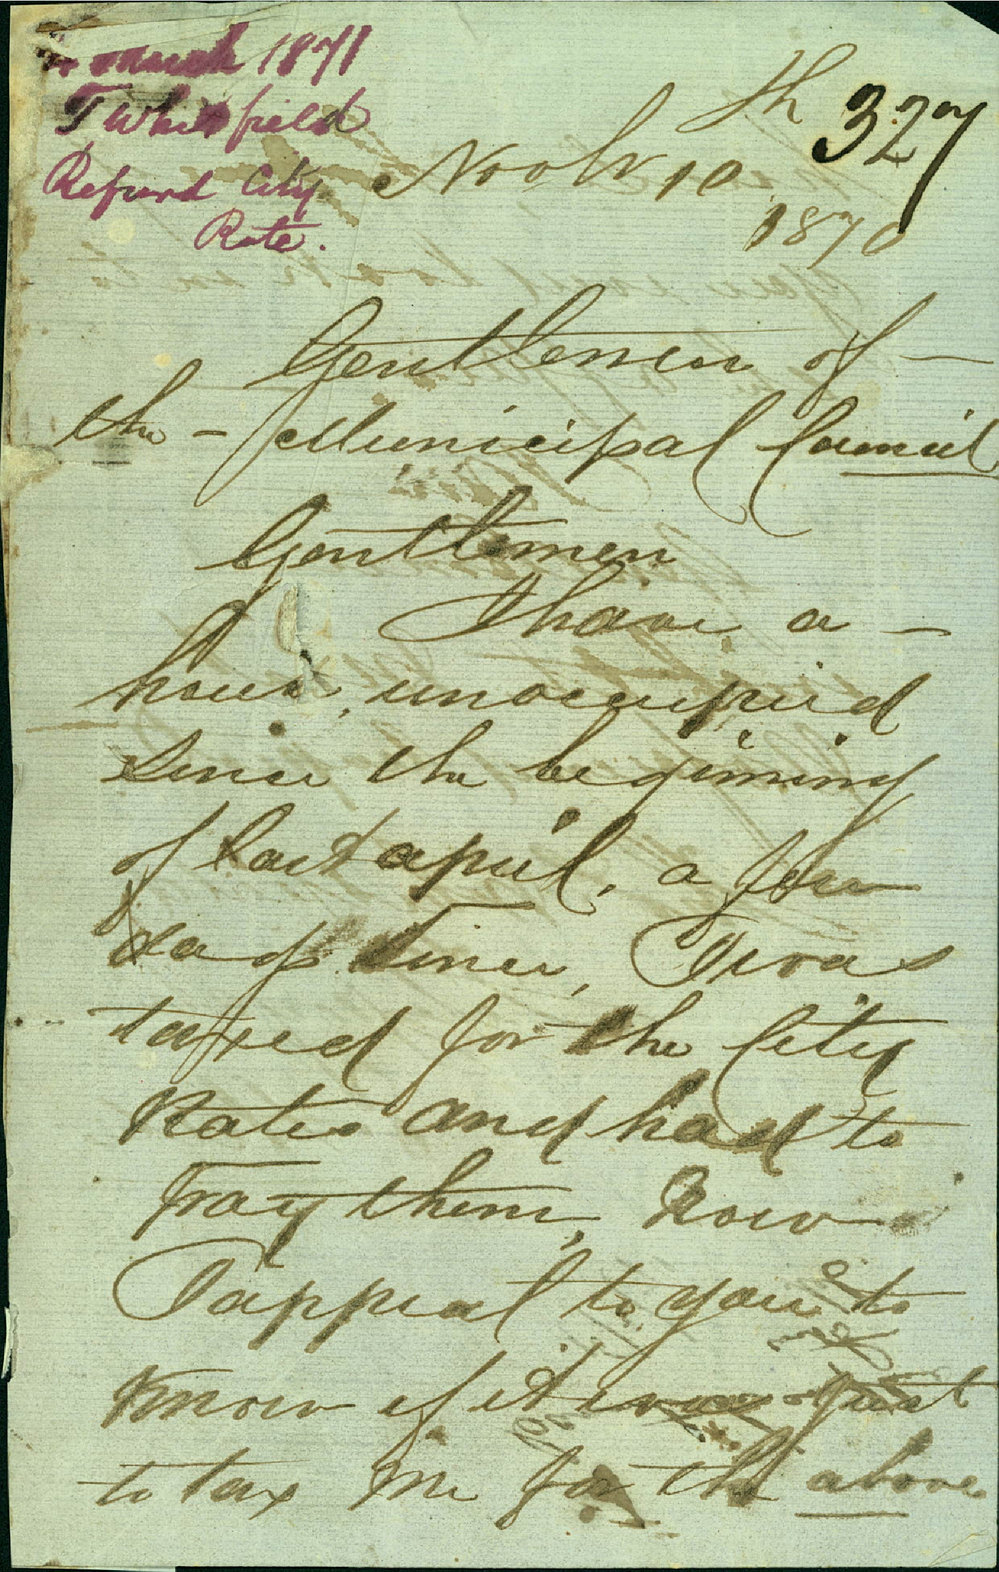 March 1871
T Whitfield
Refund City
Rate.
327
Novbr 10th
1870
Gentlemen of —
the — Municipal Council
Gentlemen
I have a —
house, unoccupied
since the beginning
of last april, a few
days since, I was
taxed for the City
Rates and had to
pay them, Now
I appeal to you to
know if it was just
to tax me for the above